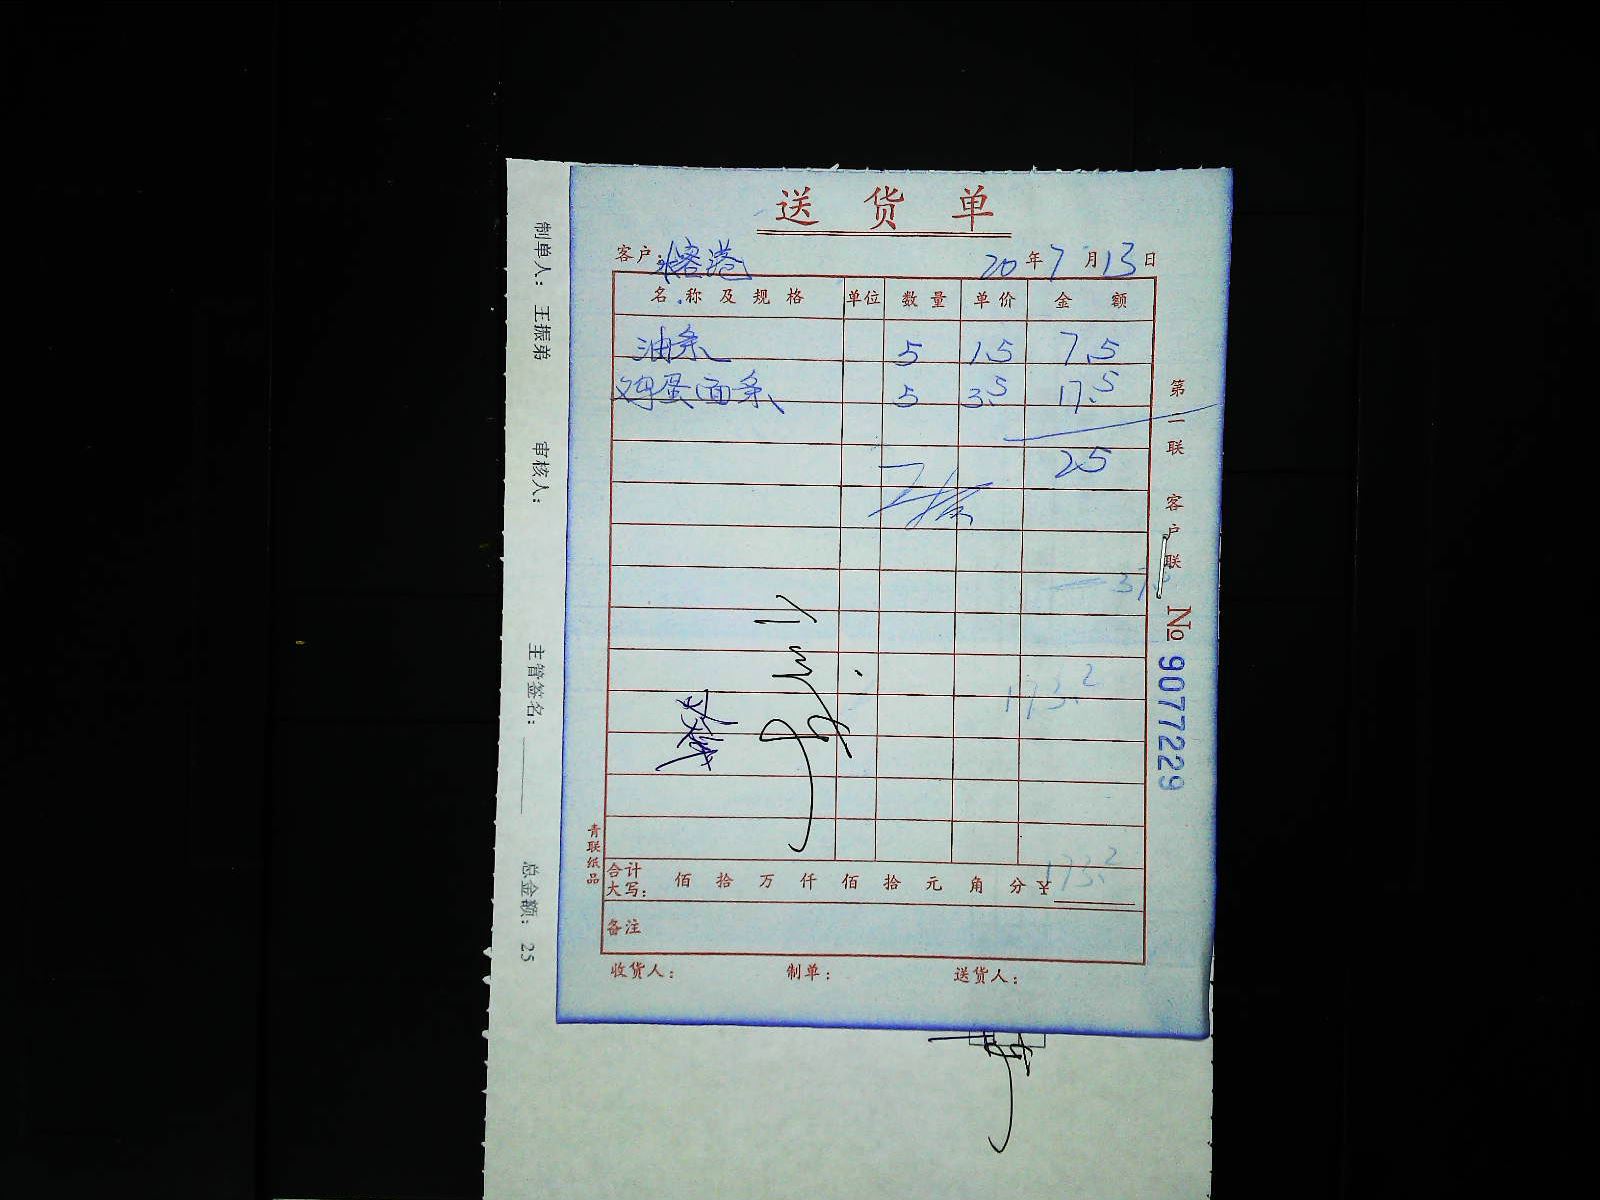 送货单
客户：榕港
20年7月13日
名称及规格 单位 数量 单价 金额
油条 5 1.5 7.5
鸡蛋面条 5 3.5 17.5
25
173.2
合计大写： 佰 拾 万 仟 佰 拾 元 角 分 ¥173.2
备注
收货人： 制单： 送货人：
青联纸品
第二联 客户联
№ 9077229
制单人： 王振弟 审核人： 主管签名： 总金额： 25